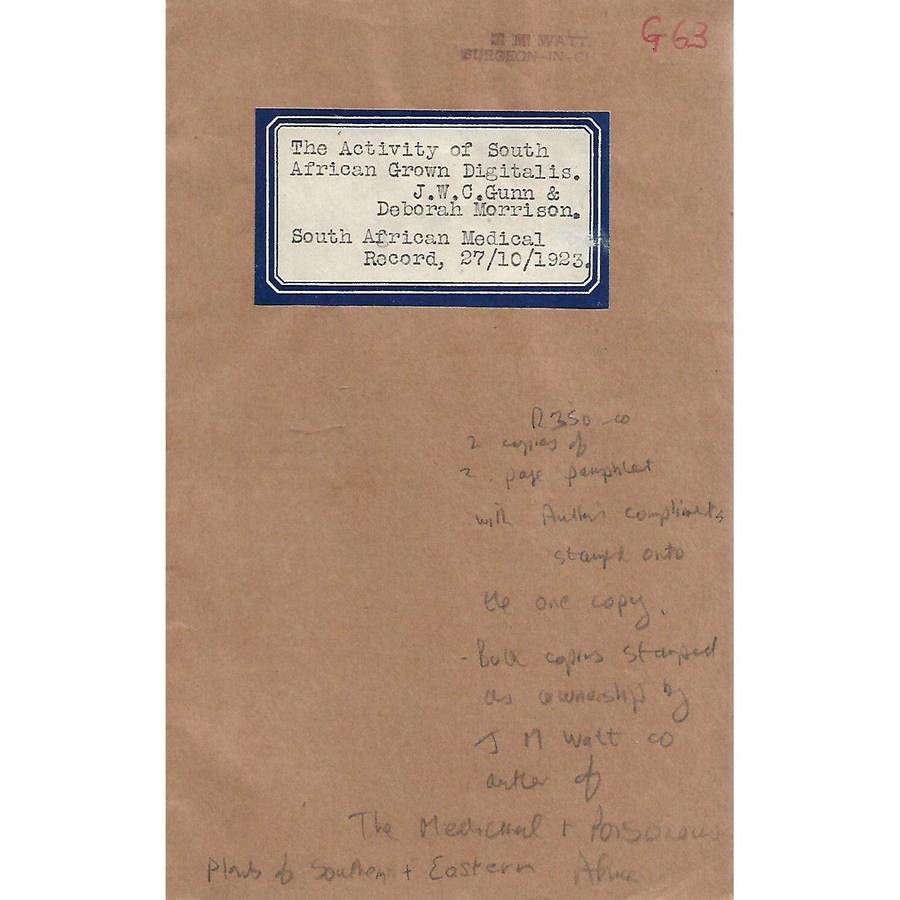 G63
WATT
SURGEON-IN-
The Activity of South
African Grown Digitalis.
J.W.C.Gunn &
Deborah Morrison.
South African Medical
Record, 27/10/1923.
R350-00
2 copies of
2 page pamphlet
with Authors compliments
stamped onto
the one copy.
- Both copies stamped
as ownership by
J M Watt co
author of
The Medicinal + Poisonous
Plants of Southern + Eastern Africa